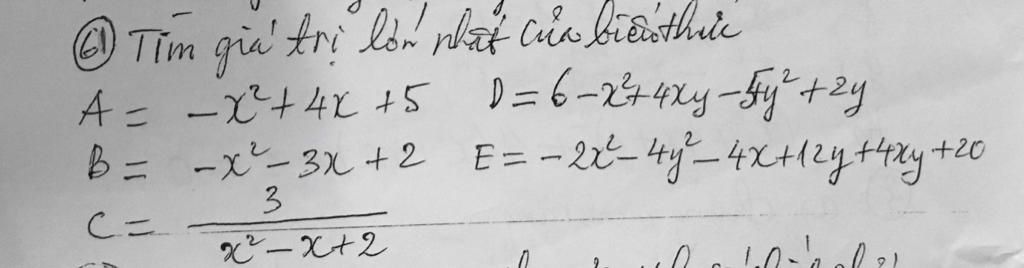 61 Tìm giá trị lớn nhất của biểu thức
A = -x² + 4x + 5 D = 6 - x² + 4xy - 5y² + 2y
B = -x² - 3x + 2 E = -2x² - 4y² - 4x + 12y + 4xy + 20
C = 3 / (x² - x + 2)